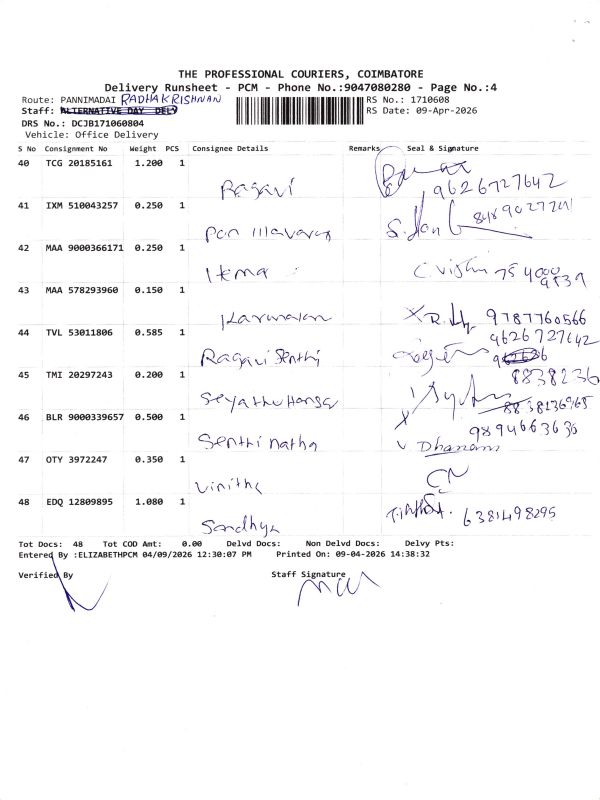 THE PROFESSIONAL COURIERS, COIMBATORE
Delivery Runsheet - PCM - Phone No.:9047080280 - Page No.:4
Route: PANNIMADAI RADHAKRISHNAN
RS No.: 1710608
Staff: ALTERNATIVE DAY DELY
RS Date: 09-Apr-2026
DRS No.: DCJB171060804
Vehicle: Office Delivery
S No Consignment No Weight PCS Consignee Details Remarks Seal & Signature
40 TCG 20185161 1.200 1
Ragavi 9626727642
41 IXM 510043257 0.250 1
42 MAA 9000366171 0.250 1
Hema
43 MAA 578293960 0.150 1
9787760566
44 TVL 53011806 0.585 1
9626727642
Ragavi Senthi
45 TMI 20297243 0.200 1
8838236
46 BLR 9000339657 0.500 1
9894663636
Senthi natha Dhanam
47 OTY 3972247 0.350 1
Vinitha
48 EDQ 12809895 1.080 1
6381498295
Sandhya
Tot Docs: 48 Tot COD Amt: 0.00 Delvd Docs: Non Delvd Docs: Delvy Pts:
Entered By :ELIZABETHPCM 04/09/2026 12:30:07 PM Printed On: 09-04-2026 14:38:32
Verified By Staff Signature